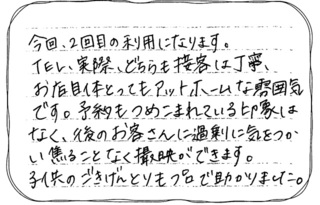 今回、2回目の利用になります。
TEL、実際、どちらも接客は丁寧、
お店自体とってもアットホームな雰囲気
です。予約もつめこまれている印象は
なく、後のお客さんに過剰に気をつか
い焦ることなく撮影ができます。
子供のごきげんとりもプロで助かりました。